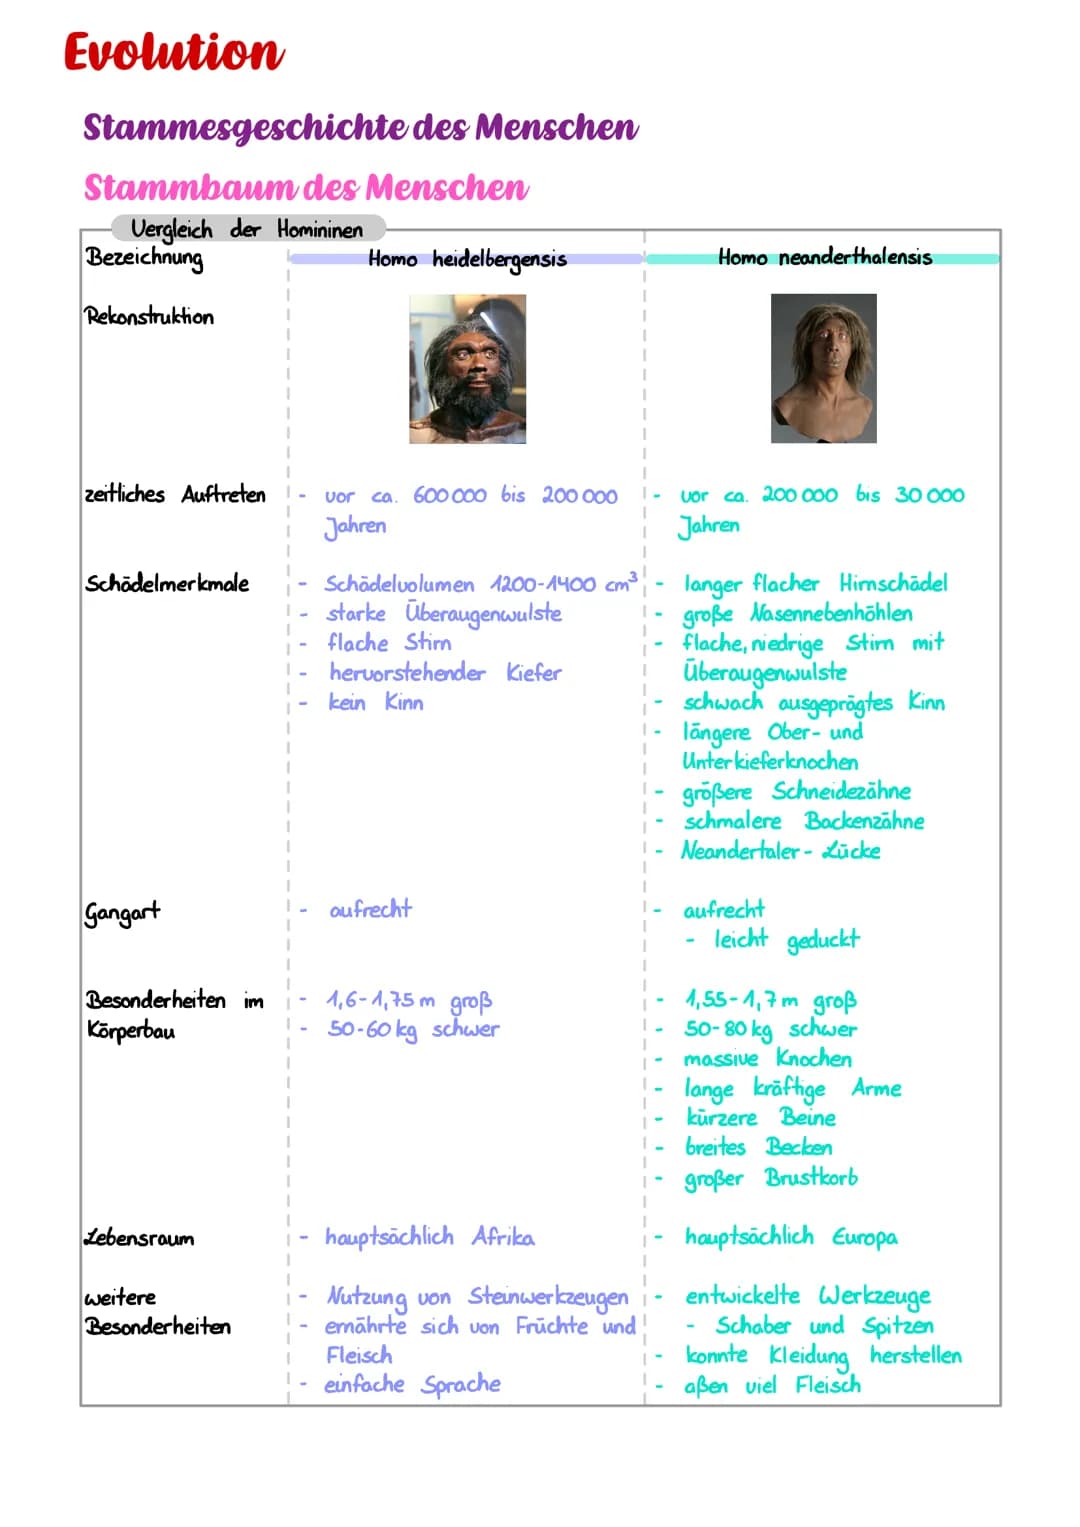 Evolution
Stammesgeschichte des Menschen
Stammbaum des Menschen
Vergleich der Homininen
Bezeichnung
Homo heidelbergensis
Homo neanderthalensis
Rekonstruktion
zeitliches Auftreten
- vor ca. 600 000 bis 200 000
Jahren
- vor ca. 200 000 bis 30 000
Jahren
Schädelmerkmale
- Schädelvolumen 1200-1400 cm³
- starke Überaugenwulste
- flache Stirn
- hervorstehender Kiefer
- kein Kinn
- langer flacher Hirnschädel
- große Nasennebenhöhlen
- flache, niedrige Stirn mit
Überaugenwulste
- schwach ausgeprägtes Kinn
- längere Ober- und
Unterkieferknochen
- größere Schneidezähne
- schmalere Backenzähne
- Neandertaler - Lücke
Gangart
- aufrecht
- aufrecht
- leicht geduckt
Besonderheiten im
Körperbau
- 1,6-1,75 m groß
- 50-60 kg schwer
- 1,55-1,7 m groß
- 50-80 kg schwer
- massive Knochen
- lange kräftige Arme
- kürzere Beine
- breites Becken
- großer Brustkorb
Lebensraum
- hauptsächlich Afrika
- hauptsächlich Europa
weitere
Besonderheiten
- Nutzung von Steinwerkzeugen
- ernährte sich von Früchte und
Fleisch
- einfache Sprache
- entwickelte Werkzeuge
- Schaber und Spitzen
- konnte Kleidung herstellen
- aßen viel Fleisch